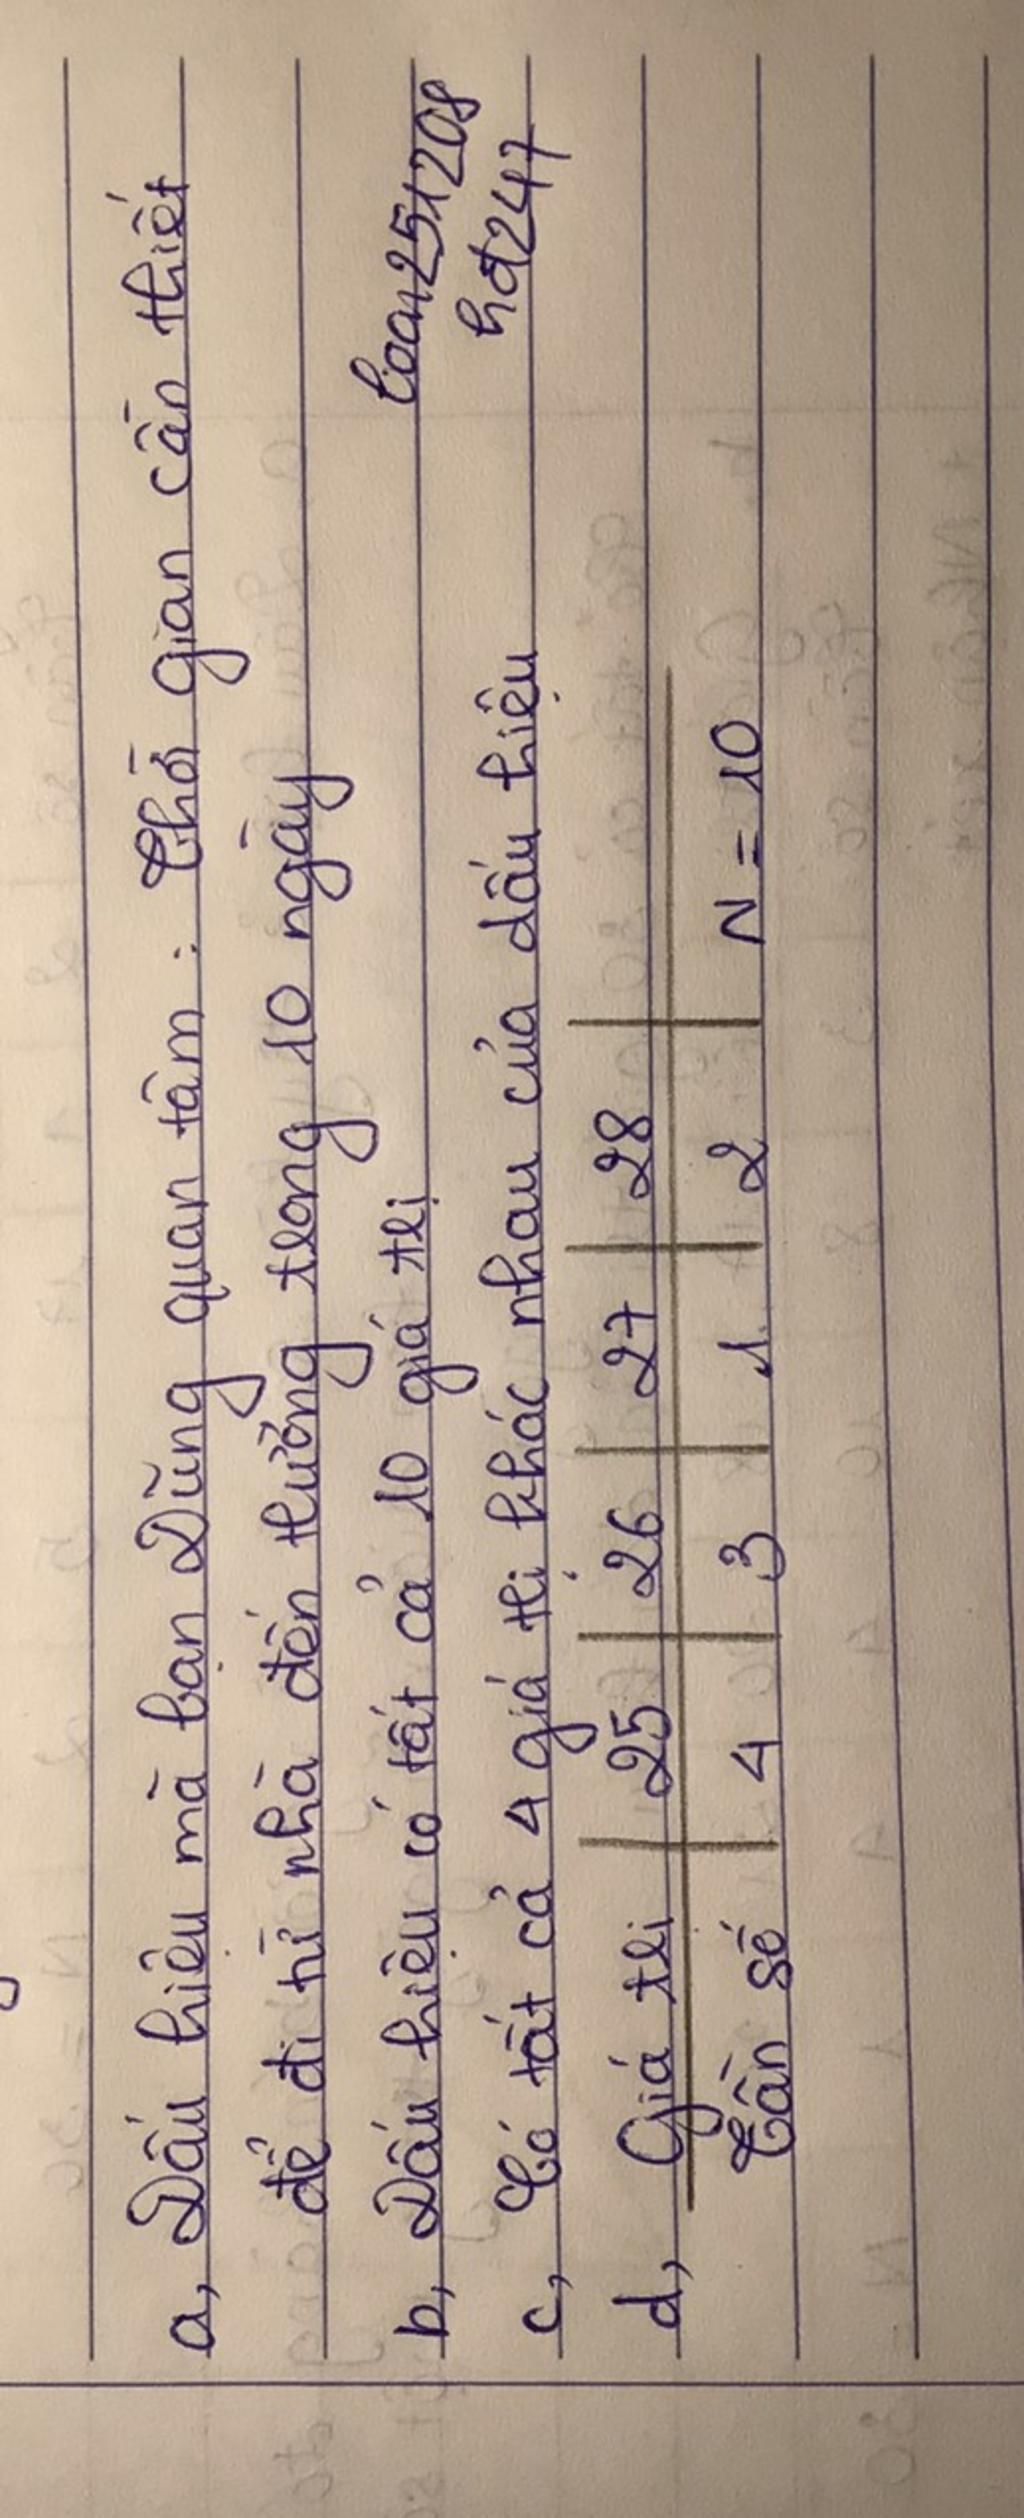 a, Dấu hiệu mà bạn Dũng quan tâm : Thời gian cần thiết
để đi từ nhà đến trường trong 10 ngày
b, Dấu hiệu có tất cả 10 giá trị
loan251208
hd247
c, Có tất cả 4 giá trị khác nhau của dấu hiệu
d, Giá trị 25 26 27 28
Tần số 4 3 1 2 N = 10